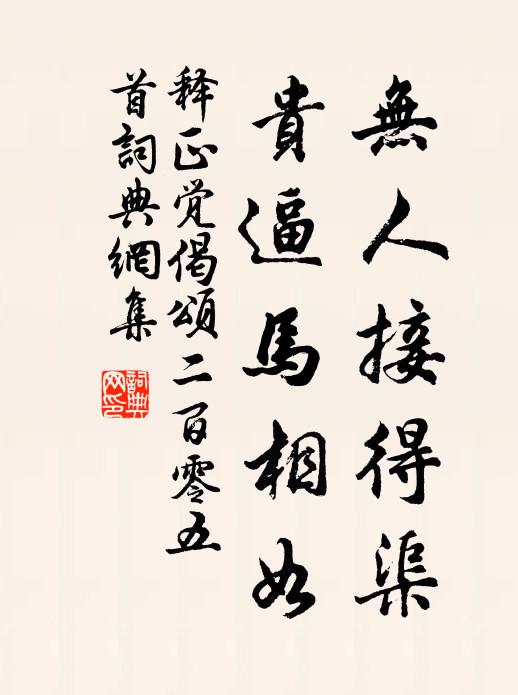 無人接得渠
貴逼馬相如
释正覚偈頌二百零五
首詞典網集
詞典
网印